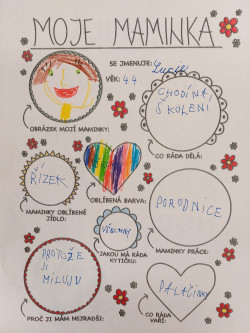 MOJE MAMINKA
SE JMENUJE:
VĚK: 44
OBRÁZEK MOJÍ MAMINKY:
CHODÍ NA
ŠKOLENÍ
CO RÁDA DĚLÁ:
ŘÍZEK
MAMINKY OBLÍBENÉ
JÍDLO:
OBLÍBENÁ BARVA:
VŠECHNY
JAKOU MÁ RÁDA
KYTIČKU:
PORODNICE
MAMINKY PRÁCE:
PROTOŽE
JI
MILUJU
PROČ JI MÁM NEJRADŠI:
PALAČINKY
CO RÁDA
VAŘÍ: